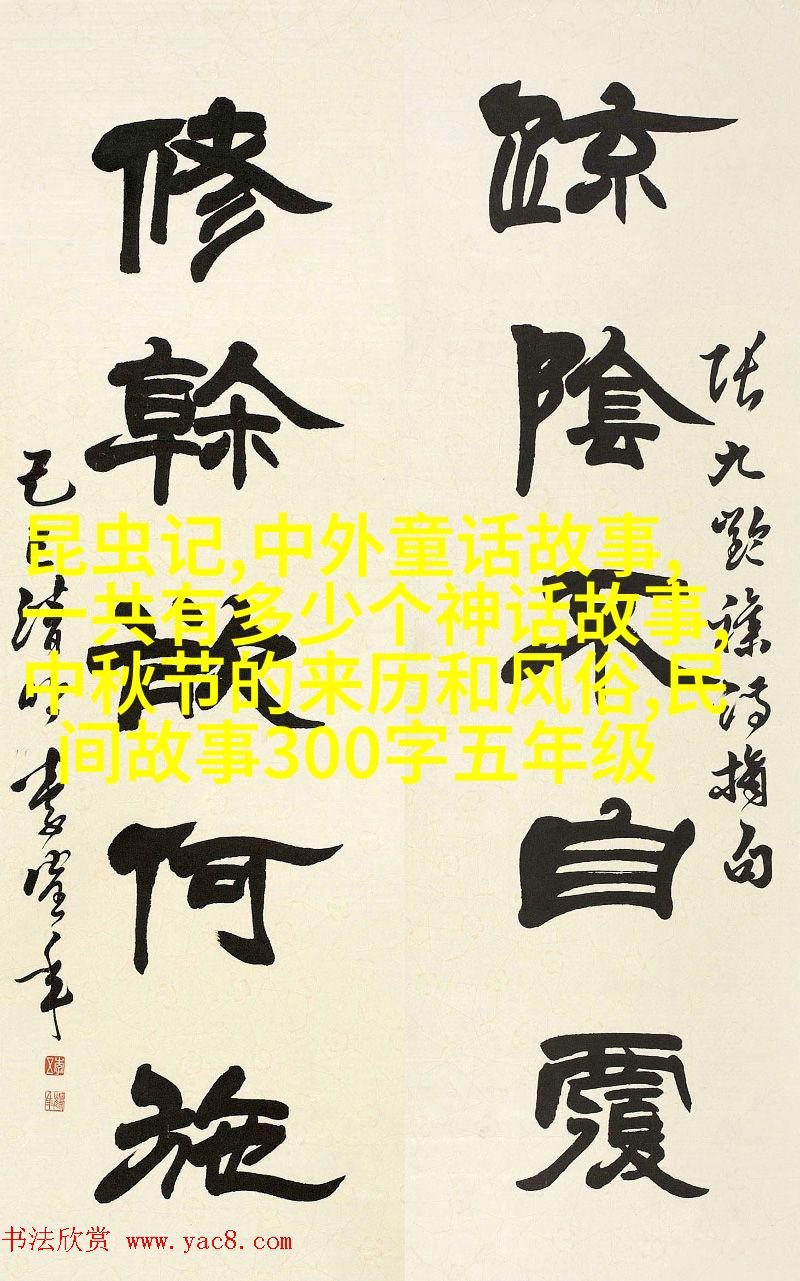 疏陰不自覆
張九齡雜詩摘句
修幹欲何施
己巳清明
昆虫记,中外童话故事,
一共有多少个神话故事,
中秋节的来历和风俗,民
间故事300字五年级
书法欣赏 www.yac8.com